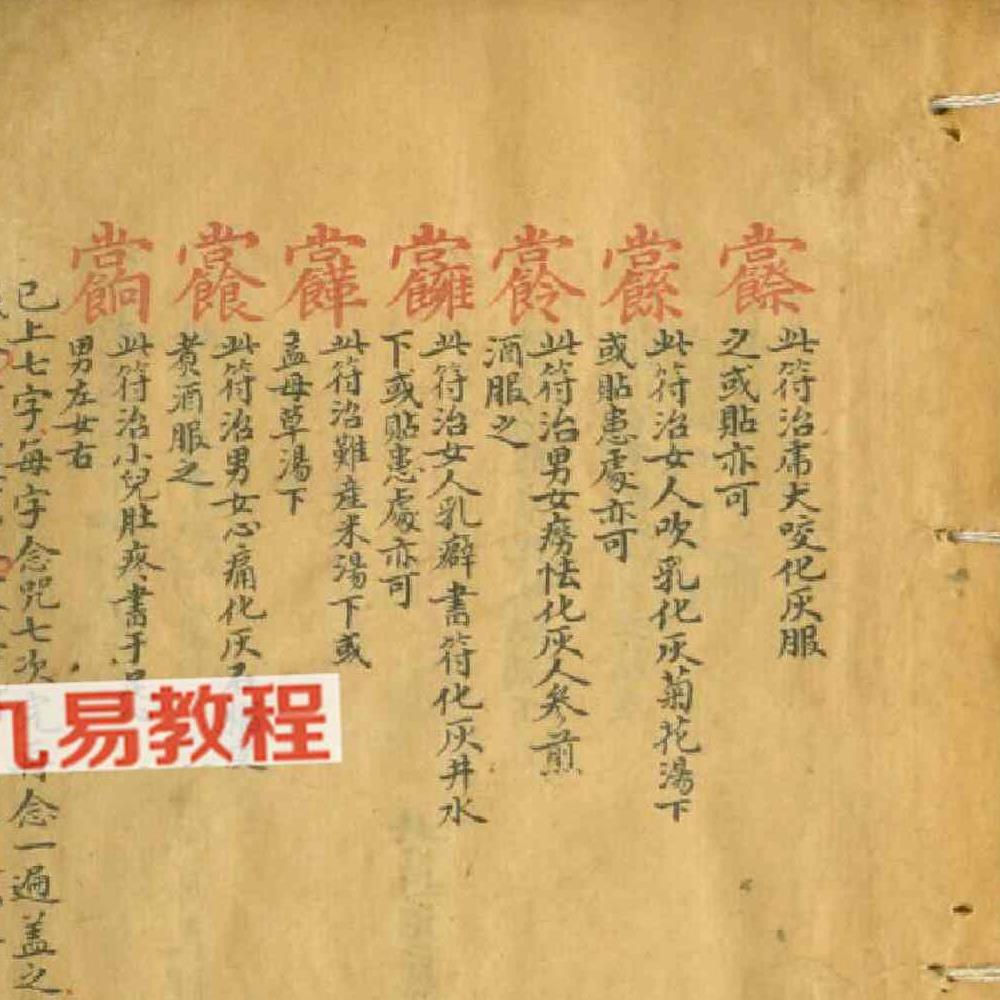 此符治虎犬咬化灰服
之或貼亦可
此符治女人吹乳化灰菊花湯下
或貼患處亦可
此符治男女癆怯化灰人參煎
酒服之
此符治女人乳癖書符化灰井水
下或貼患處亦可
此符治難產米湯下或
益母草湯下
此符治男女心痛化灰
黃酒服之
此符治小兒肚疼書于
男左女右
已上七字每字念咒七次 念一遍蓋之
九易教程